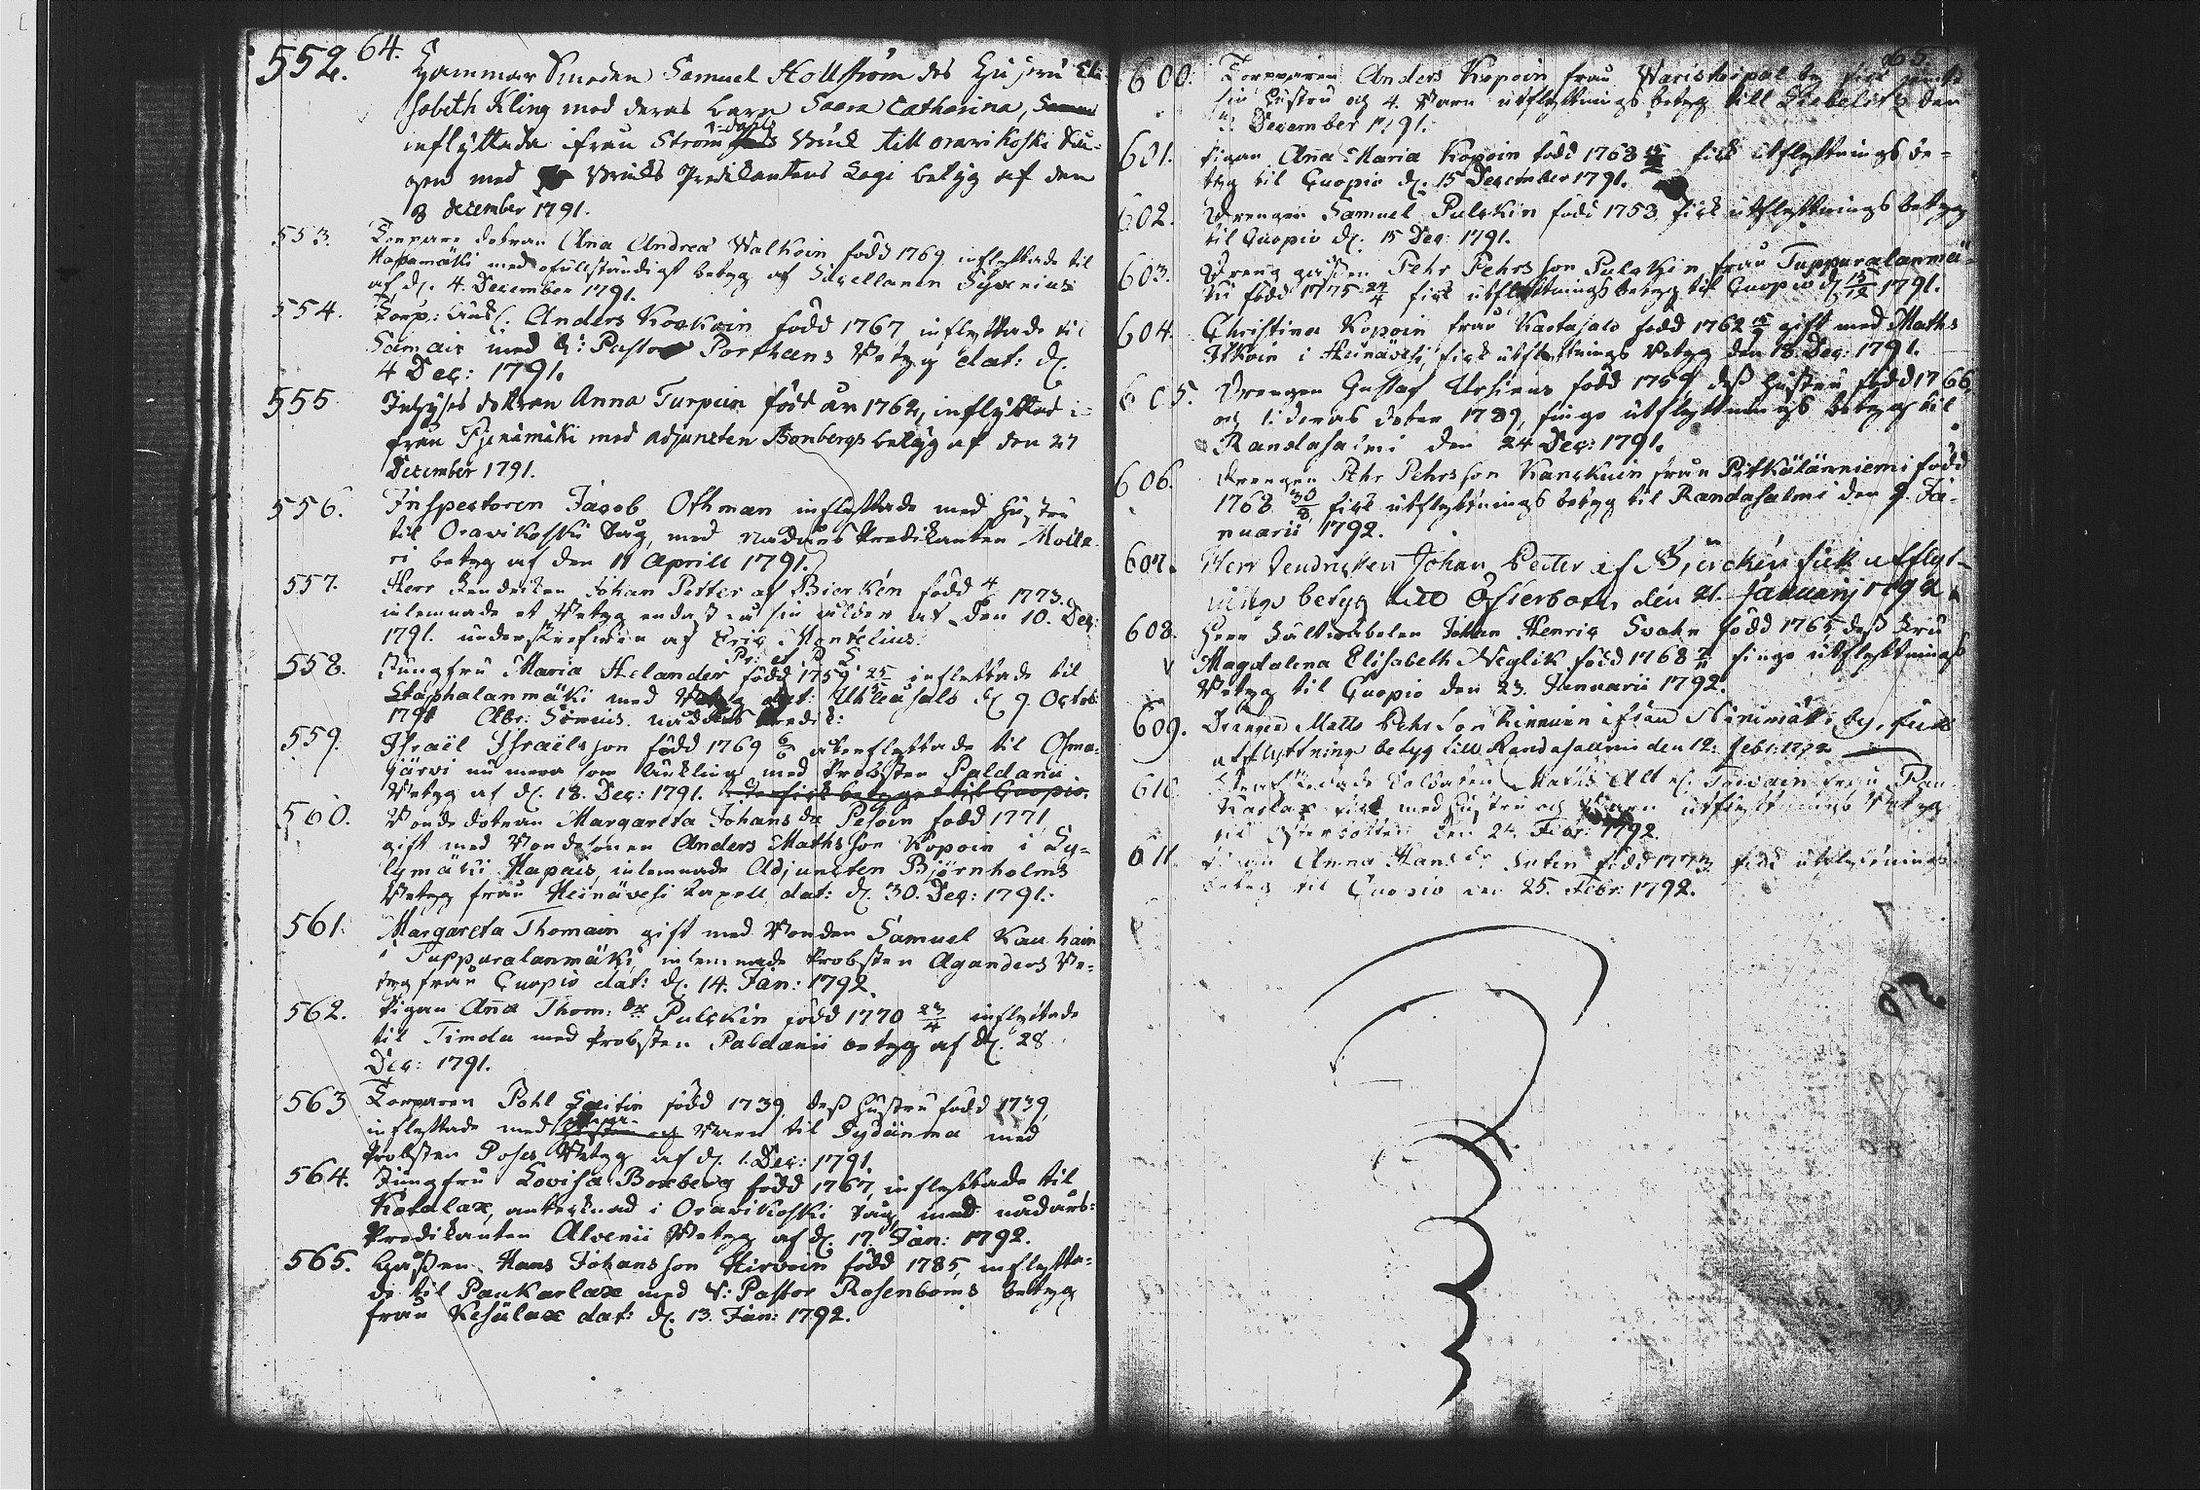 64.
552. Hammar Smeden Samuel Hollström des Hustru Eli-
sabeth Kling med deras barn Saara Catharina,
inflyttade ifrån Ströms Bruk till oravikoski Tu-
gen med Bruks Predikantens Lagi betyg af den
8 december 1791.
553. Torpare dottran Ana Andrea Walkoin född 1769 inflyttade til
Hapamäki med ofullständigt betyg af Sacellanen Sydenius
af d. 4. December 1791.
554. Torp: Anders Koskoin född 1767 inflyttade til
Samais med V: Pastor Porthans Betyg dat: d.
4 Dec: 1791.
555 Inhyses dottran Anna Turpein född år 1762, inflyttad i-
från Pjenimäki med Adjuncten Bonbergs betyg af den 27
December 1791.
556. Inspectoren Jacob Othman inflyttade med Hustru
til Oravikoski Tug, med Nadårs Predikanten Molla-
ri betyg af den 11 Aprill 1791.
557. Herr Kendriken Johan Petter af Bierkén född 4 1773.
inlemnade et Betyg endast om sin ålder af den 10. Dec:
1791. underskrefwen af Eric Montelius.
Pr: et P S
558. Jungfru Maria Helander född 1759 25 inflyttade til
Staphalanmäki med Betyg dat: Uhleåsalo d. 9. Octob:
1791 Abr: Simius nådårs Predik:
559. Israël Israëlsson född 1769 6 återflyttade til Osma-
järvi nu mera som Enkling med Probsten Paldani
Betyg af d. 18. Dec: 1791.
560. Bonde dotran Margareta Johans dr Pesoin född 1771
gift med Bondesonen Anders Mathsson Kopoin i Sy-
lymäki Hapais, inlemnade Adjuncten Björnholms
Betyg från Heinävesi Capell dat: d. 30. Dec: 1791.
561. Margareta Thomain gift med Bonden Samuel Kauhain
i Tuppuralanmäki inlemnade Probsten Aganders Be-
tyg från Cuopio dat: d. 14. Jan: 1792.
562. Pigan Ana Thom: dr Pulckin född 1770 23/4 inflyttade
til Timola med Probsten Paldanii betyg af d. 28
Dec: 1791.
563 Torparen Pohl Saitin född 1739, dess Hustru född 1739,
inflyttade med Barn til Sydänma med
Probsten Poses Betyg af d. 1. Dec: 1791
564. Jungfru Lovisa Boxberg född 1767, inflyttade til
Kotalax, antecknad i Oravikoski Tug, med nådårs-
Predikanten Alvenii Betyg af d. 17. Jan: 1792.
565. Gåssen Hans Johansson Hirvoin född 1785, inflytta-
de til Paukarlax med V: Pastor Rosenboms betyg
från Kesälax dat: d. 13. Jan: 1792.
65.
600. Torparen Anders Kopoin från Waristaipal by fick jemte
sin Hustru och 4. Barn utflyttnings betyg till Liebelitz den
December 1791.
601. Pigan Ana Maria Kopoin född 1768 fick utflyttnings be-
tyg til Cuopio d. 15 December 1791.
602. Drengen Samuel Pulckin född 1753 fick utflyttnings betyg
til Cuopio d. 15 Dec: 1791.
603. Dreng gåssen Pehr Pehrsson Pulckin från Tuppuralanmä-
ki född 1775 24/4 fick utflyttnings betyg til Cuopio d. 15/12 1791.
604. Christina Kopoin från Kartasalo född 1762 gift med Maths
Itkoin i Heinävesi, fick utflyttnings Betyg den 18. Dec: 1791.
605. Drengen Gustaf Ursinus född 1759 dess Hustru född 1766,
och 1. deras doter 1789, finge utflyttnings betyg til
Randasalmi den 24 Dec: 1791.
606. Drengen Pehr Pehrsson Kanckuin från Pitkälänniemi född
1768 30/8 fick utflyttnings betyg til Randasalmi den 9. Ja-
nuarii 1792.
607. Herr Kendricken Johan Petter af Bjerckén fick utflyt-
nings betyg till Österbotn, den 21. Januarij 1792.
608. Herr Fältwäbelen Johan Henric Svahn född 1765 dess Fru
Magdalena Elisabeth Neglik född 1768 finge utflyttnings
Betyg til Cuopio den 23. Januarii 1792.
609. Drängen Matts Pehrson Kinnuin ifrån Niinimäki by, fick
utflyttnings betyg till Randasallmi den 12: febr: 1792
610. Soldaten Maths Alt från
Kaslax fick med Hustru och Barn utflyttnings Betyg
til Österbotten den 24 Febr: 1792.
611. Pigan Anna Hans dr Suten född 1773 fick utflyttnings
betyg til Cuopio den 25. Febr: 1792.